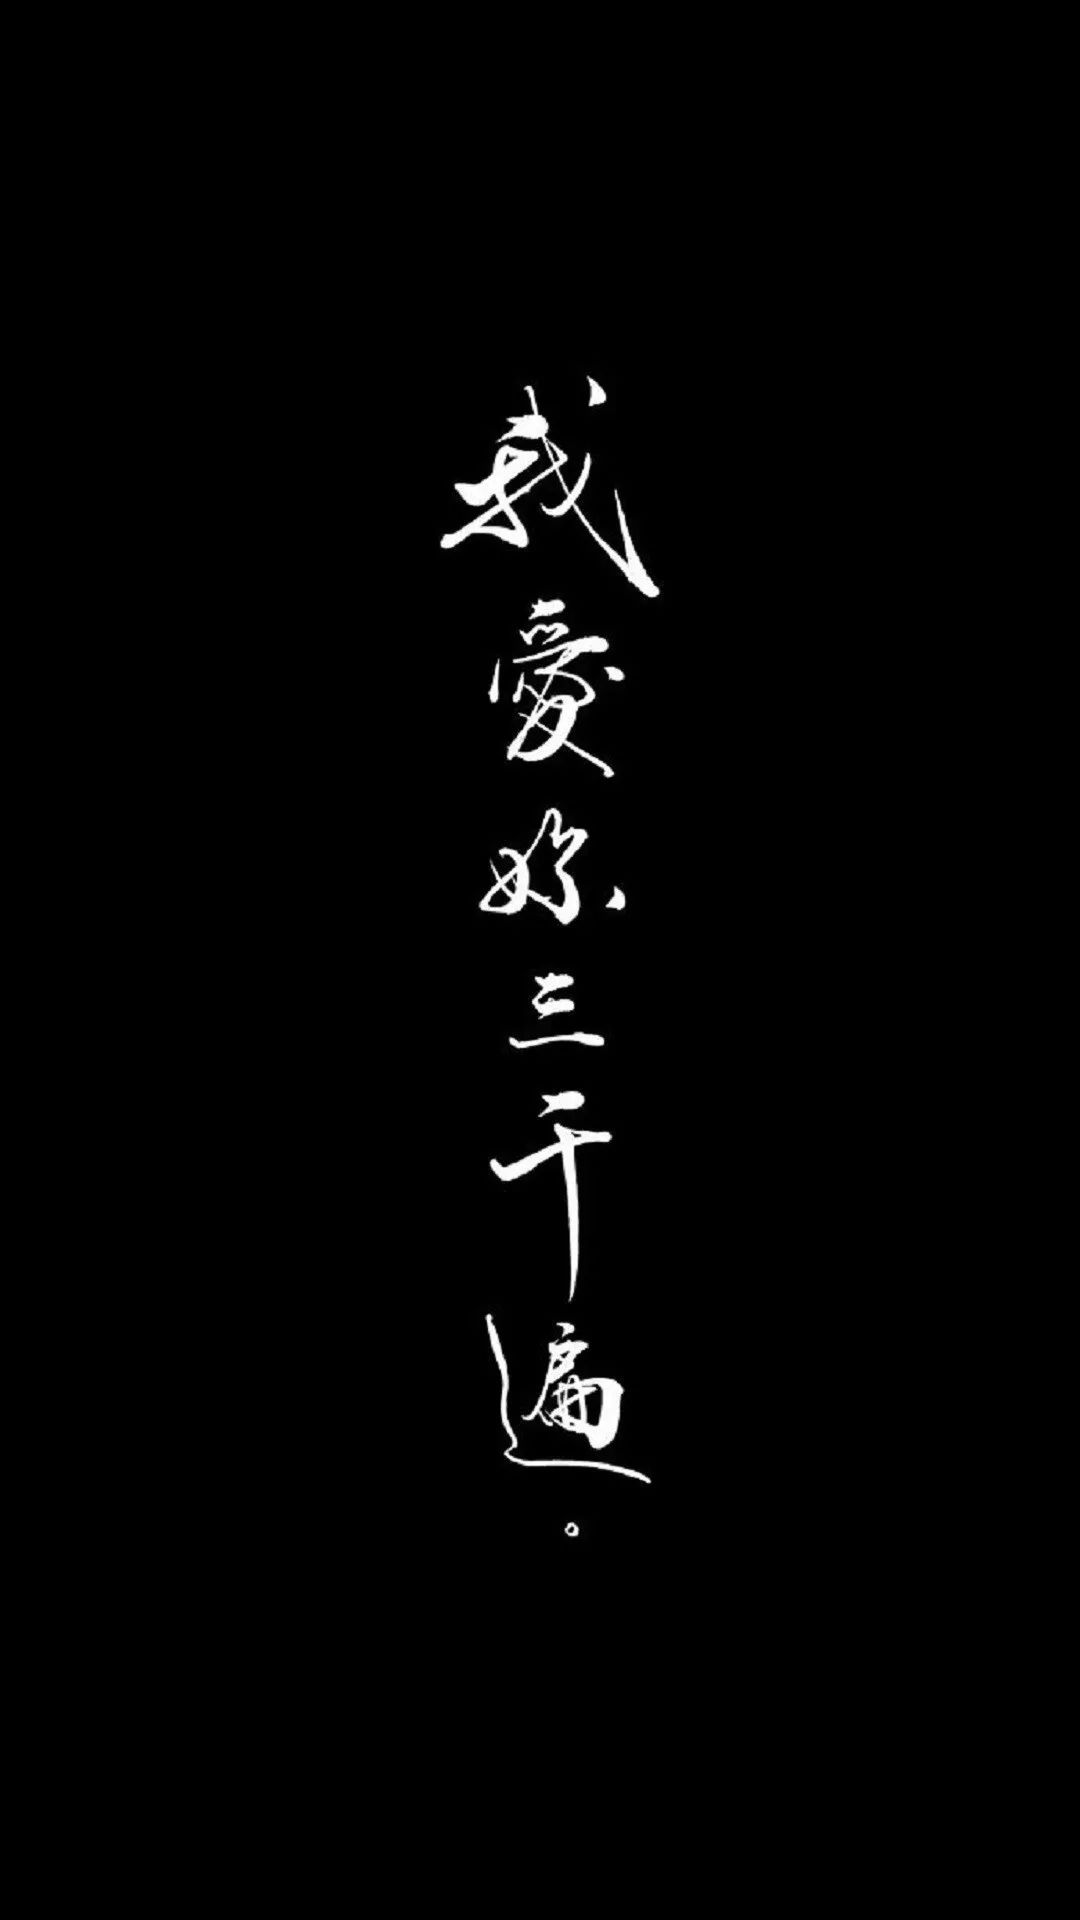 我愛妳三千遍。